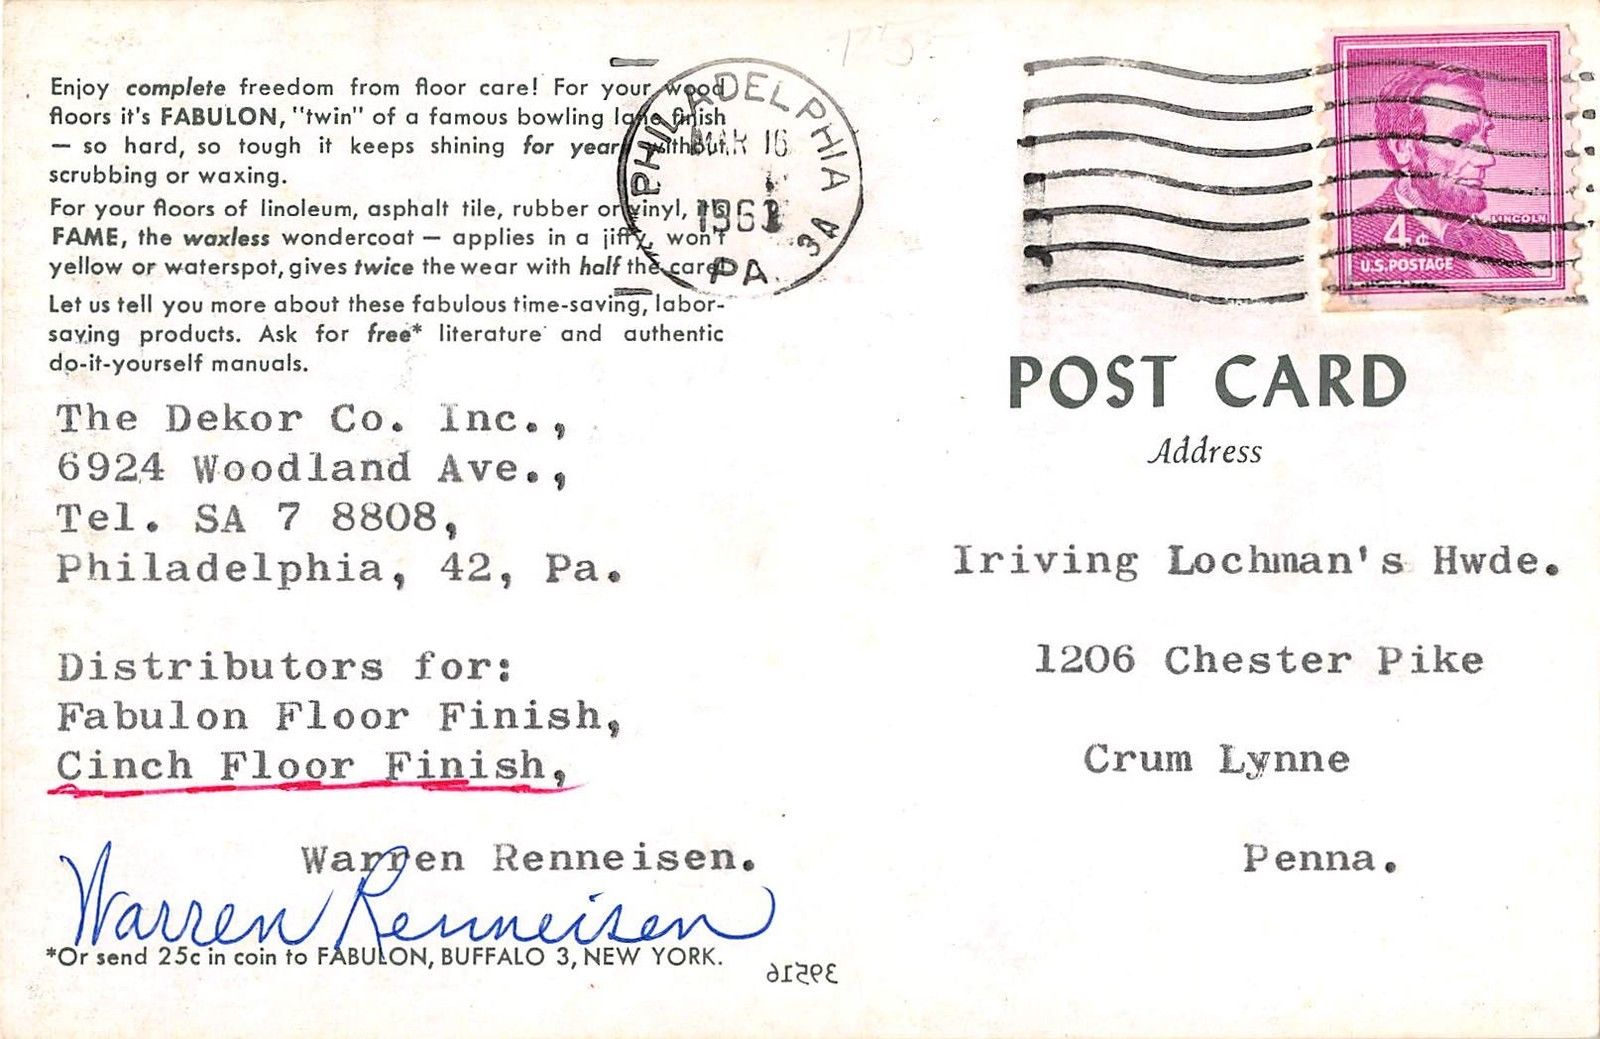 Enjoy complete freedom from floor care! For your wood
floors it's FABULON, "twin" of a famous bowling lane finish
— so hard, so tough it keeps shining for years without
scrubbing or waxing.
For your floors of linoleum, asphalt tile, rubber or vinyl, it's
FAME, the waxless wondercoat — applies in a jiffy, won't
yellow or waterspot, gives twice the wear with half the care!
Let us tell you more about these fabulous time-saving, labor-
saving products. Ask for free* literature and authentic
do-it-yourself manuals.
The Dekor Co. Inc.,
6924 Woodland Ave.,
Tel. SA 7 8808,
Philadelphia, 42, Pa.
Distributors for:
Fabulon Floor Finish,
Cinch Floor Finish,
Warren Renneisen.
Warren Renneisen
*Or send 25c in coin to FABULON, BUFFALO 3, NEW YORK.
39516
PHILADELPHIA
MAR 16
1963
PA.
3A
LINCOLN
4¢
U.S. POSTAGE
POST CARD
Address
Iriving Lochman's Hwde.
1206 Chester Pike
Crum Lynne
Penna.